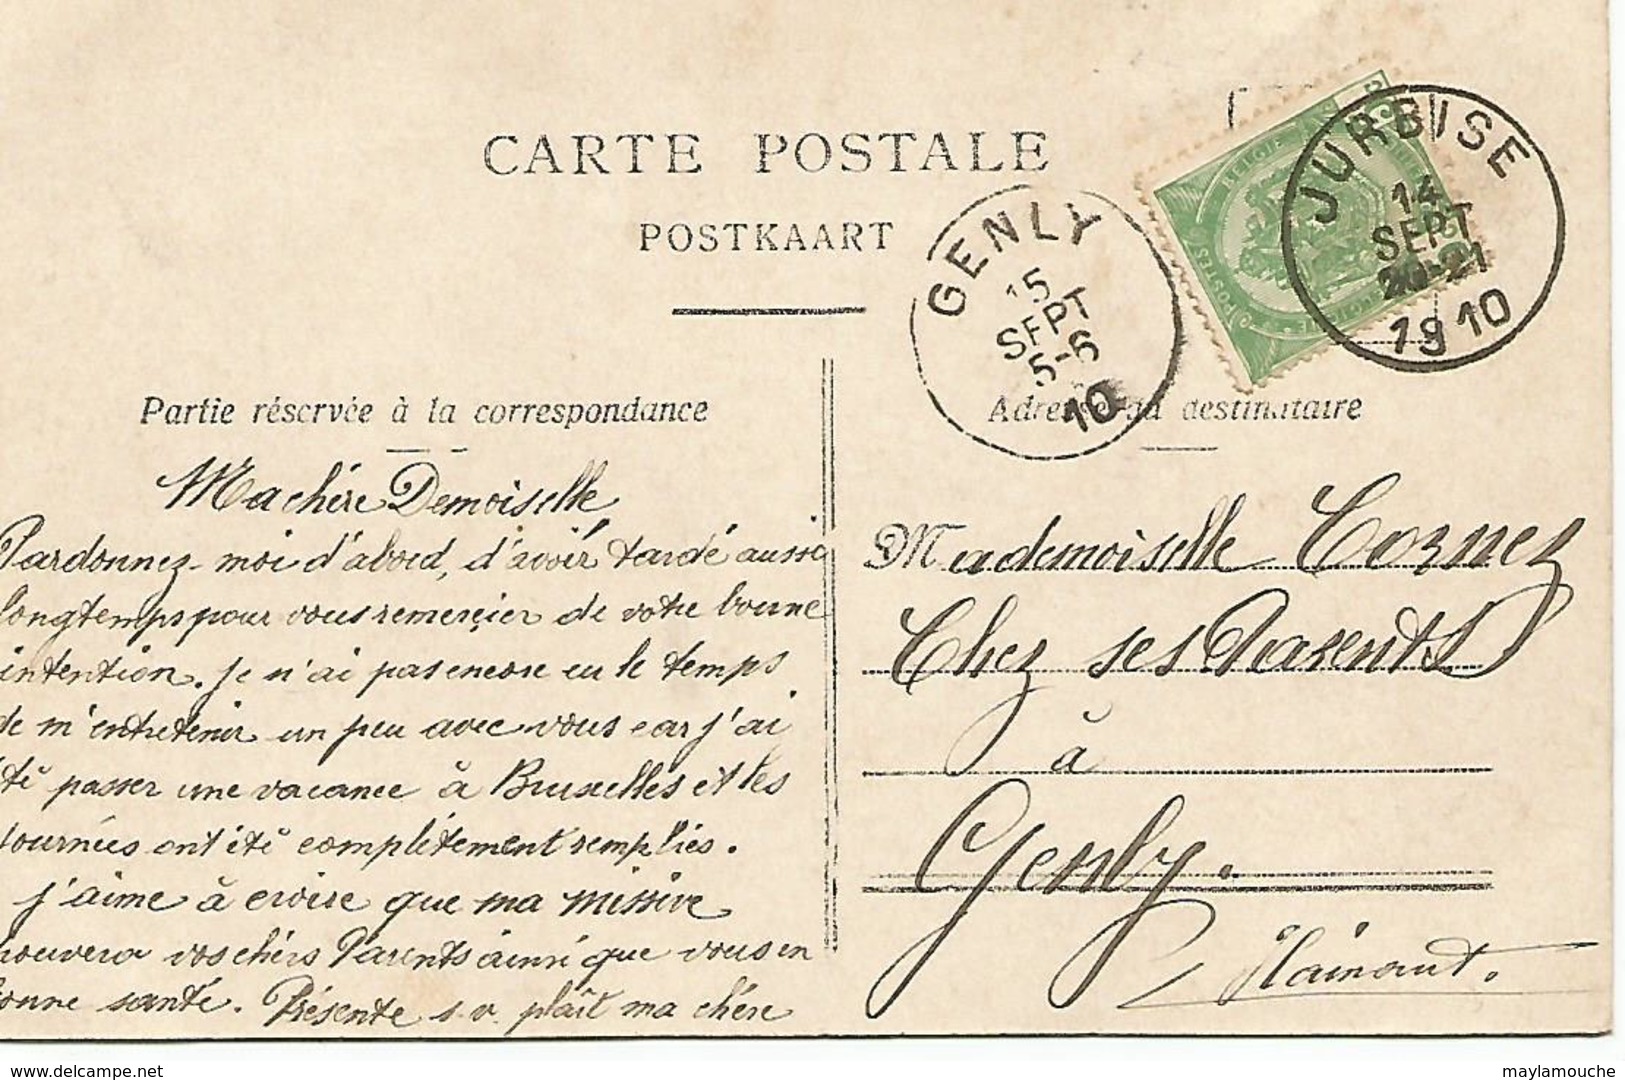 CARTE POSTALE
POSTKAART
GENLY
15
SEPT
5-6
10
JURBISE
14
SEPT
20-21
1910
BELGIE
POSTES
Partie réservée à la correspondance
Adresse du destinataire
Ma chére Demoiselle
Pardonnez-moi d'abord, d'avoir tardé aussi
longtemps pour vous remerçier de votre bonne
intention. Je n'ai pas encore eu le temps
de m'entretenir un peu avec vous car j'ai
été passer une vacance à Bruxelles et les
tournées ont été complétement remplies.
j'aime à croire que ma missive
trouvera vos chérs Parents ainsi que vous en
bonne santé. Présente s.v. plaît ma chére
Mademoiselle Cornez
Chez ses Parents
à
Genly.
Hainaut.
delcampe.net
maylamouche